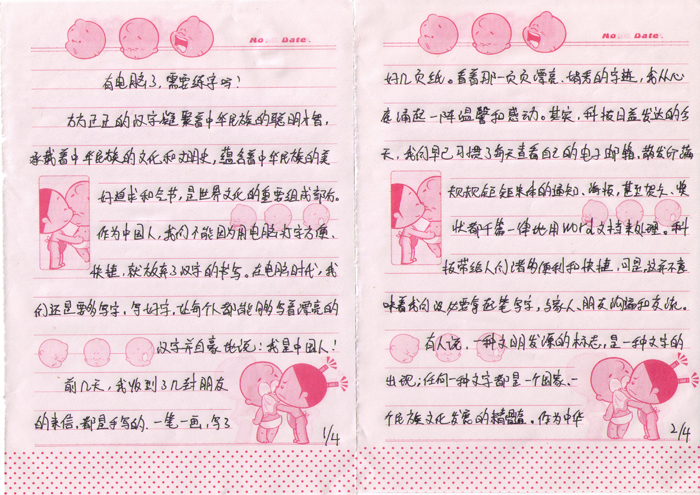 No. Date.
有电脑了,需要练字吗?
方方正正的汉字凝聚着中华民族的聪明才智,
承载着中华民族的文化和文明史,蕴含着中华民族的美
好追求和气节,是世界文化的重要组成部分。
作为中国人,我们不能因为用电脑打字方便、
快捷,就放弃了汉字的书写。在电脑时代,我
们还是要多写字,写好字,让每个人都能够写着漂亮的
汉字并自豪地说:我是中国人!
前几天,我收到了几封朋友
的来信,都是手写的,一笔一画,写了
1/4
No. Date.
好几页纸。看着那一页页漂亮、娟秀的字迹,我从心
底涌起一阵温馨和感动。其实,科技日益发达的今
天,我们早已习惯了每天查看自己的电子邮箱,散发价满
规规矩矩宋体的通知、海报,甚至贺卡、奖
状都千篇一律地用Word文档来处理。科
技带给人们诸多便利和快捷,可是,这并不意
味着我们没必要拿起笔写字,与家人、朋友沟通和交流。
有人说,一种文明发源的标志,是一种文字的
出现;任何一种文字都是一个国家、一
个民族文化发展的精髓。作为中华
2/4